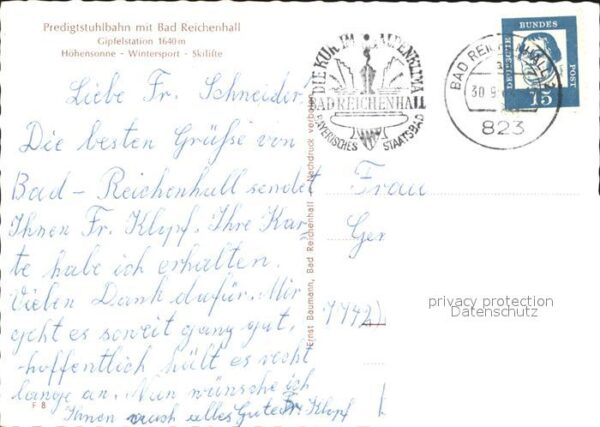 Predigtstuhlbahn mit Bad Reichenhall
Gipfelstation 1640 m
Höhensonne - Wintersport - Skilifte
Liebe Fr. Schneider.
Die besten Grüße von
Bad-Reichenhall sendet
Ihnen Fr. Klopf. Ihre Kar-
te habe ich erhalten.
Vielen Dank dafür. Mir
geht es soweit ganz gut,
hoffentlich hält es recht
lange an. Nun wünsche ich
Ihnen auch alles Gute Fr. Klopf
F 8
Ernst Baumann, Bad Reichenhall
Nachdruck verboten
DIE KUR IM ALPENKLIMA
BAD REICHENHALL
BAYERISCHES STAATSBAD
BAD REICHENHALL
30.9.
823
DEUTSCHE BUNDESPOST
15
Frau
Ger
privacy protection
Datenschutz